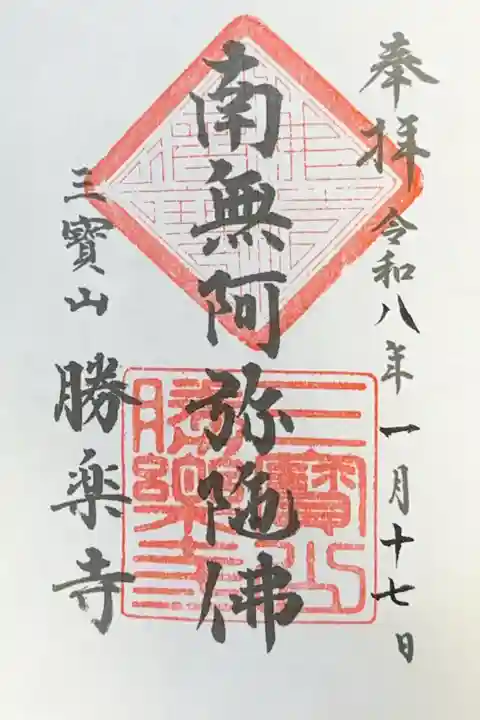 奉拝 令和八年一月十七日
南無阿弥陀佛
三寳山 勝楽寺
三寳山
勝樂寺